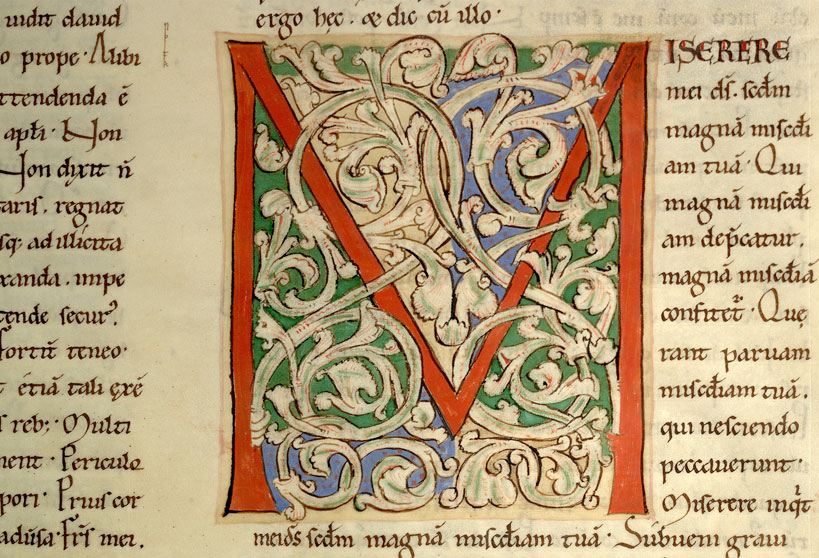 uidit dauid
o prope · Alibi
ttendenda ē
apłi · Non
Non dixit ñ
taris . regnat
sq; ad illicita
xanda . impe
tende secur᷒.
fortiũ teneo ·
t etiā tali exē
s reb; · Multi
ment · Periculo
pori · Prius cor
adusa · Frs mei .
ergo hęc . & dic cū illo ·
MISERERE
mei ds̄ . scd̄m
magnā misc̄di
am tuā · Qui
magnā misc̄di
am dep̄catur .
magnā misc̄diā
confitet᷑ · Quę
rant paruam
misc̄diam tuā .
qui nesciendo
peccauerunt ·
Miserere inq̄t
mei ds̄ scd̄m magnā misc̄diam tuā · Subueni graui